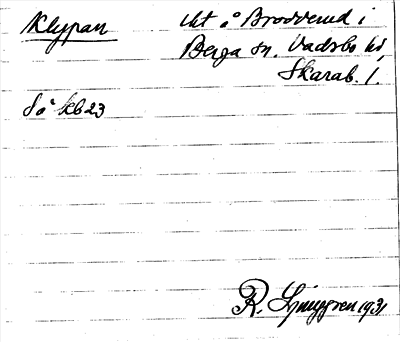 Klyppan
Ut å Brodderud i
Berga sn. Vadsbo hd,
Skarab. l.
Så kb 23
R. Ljunggren 1931